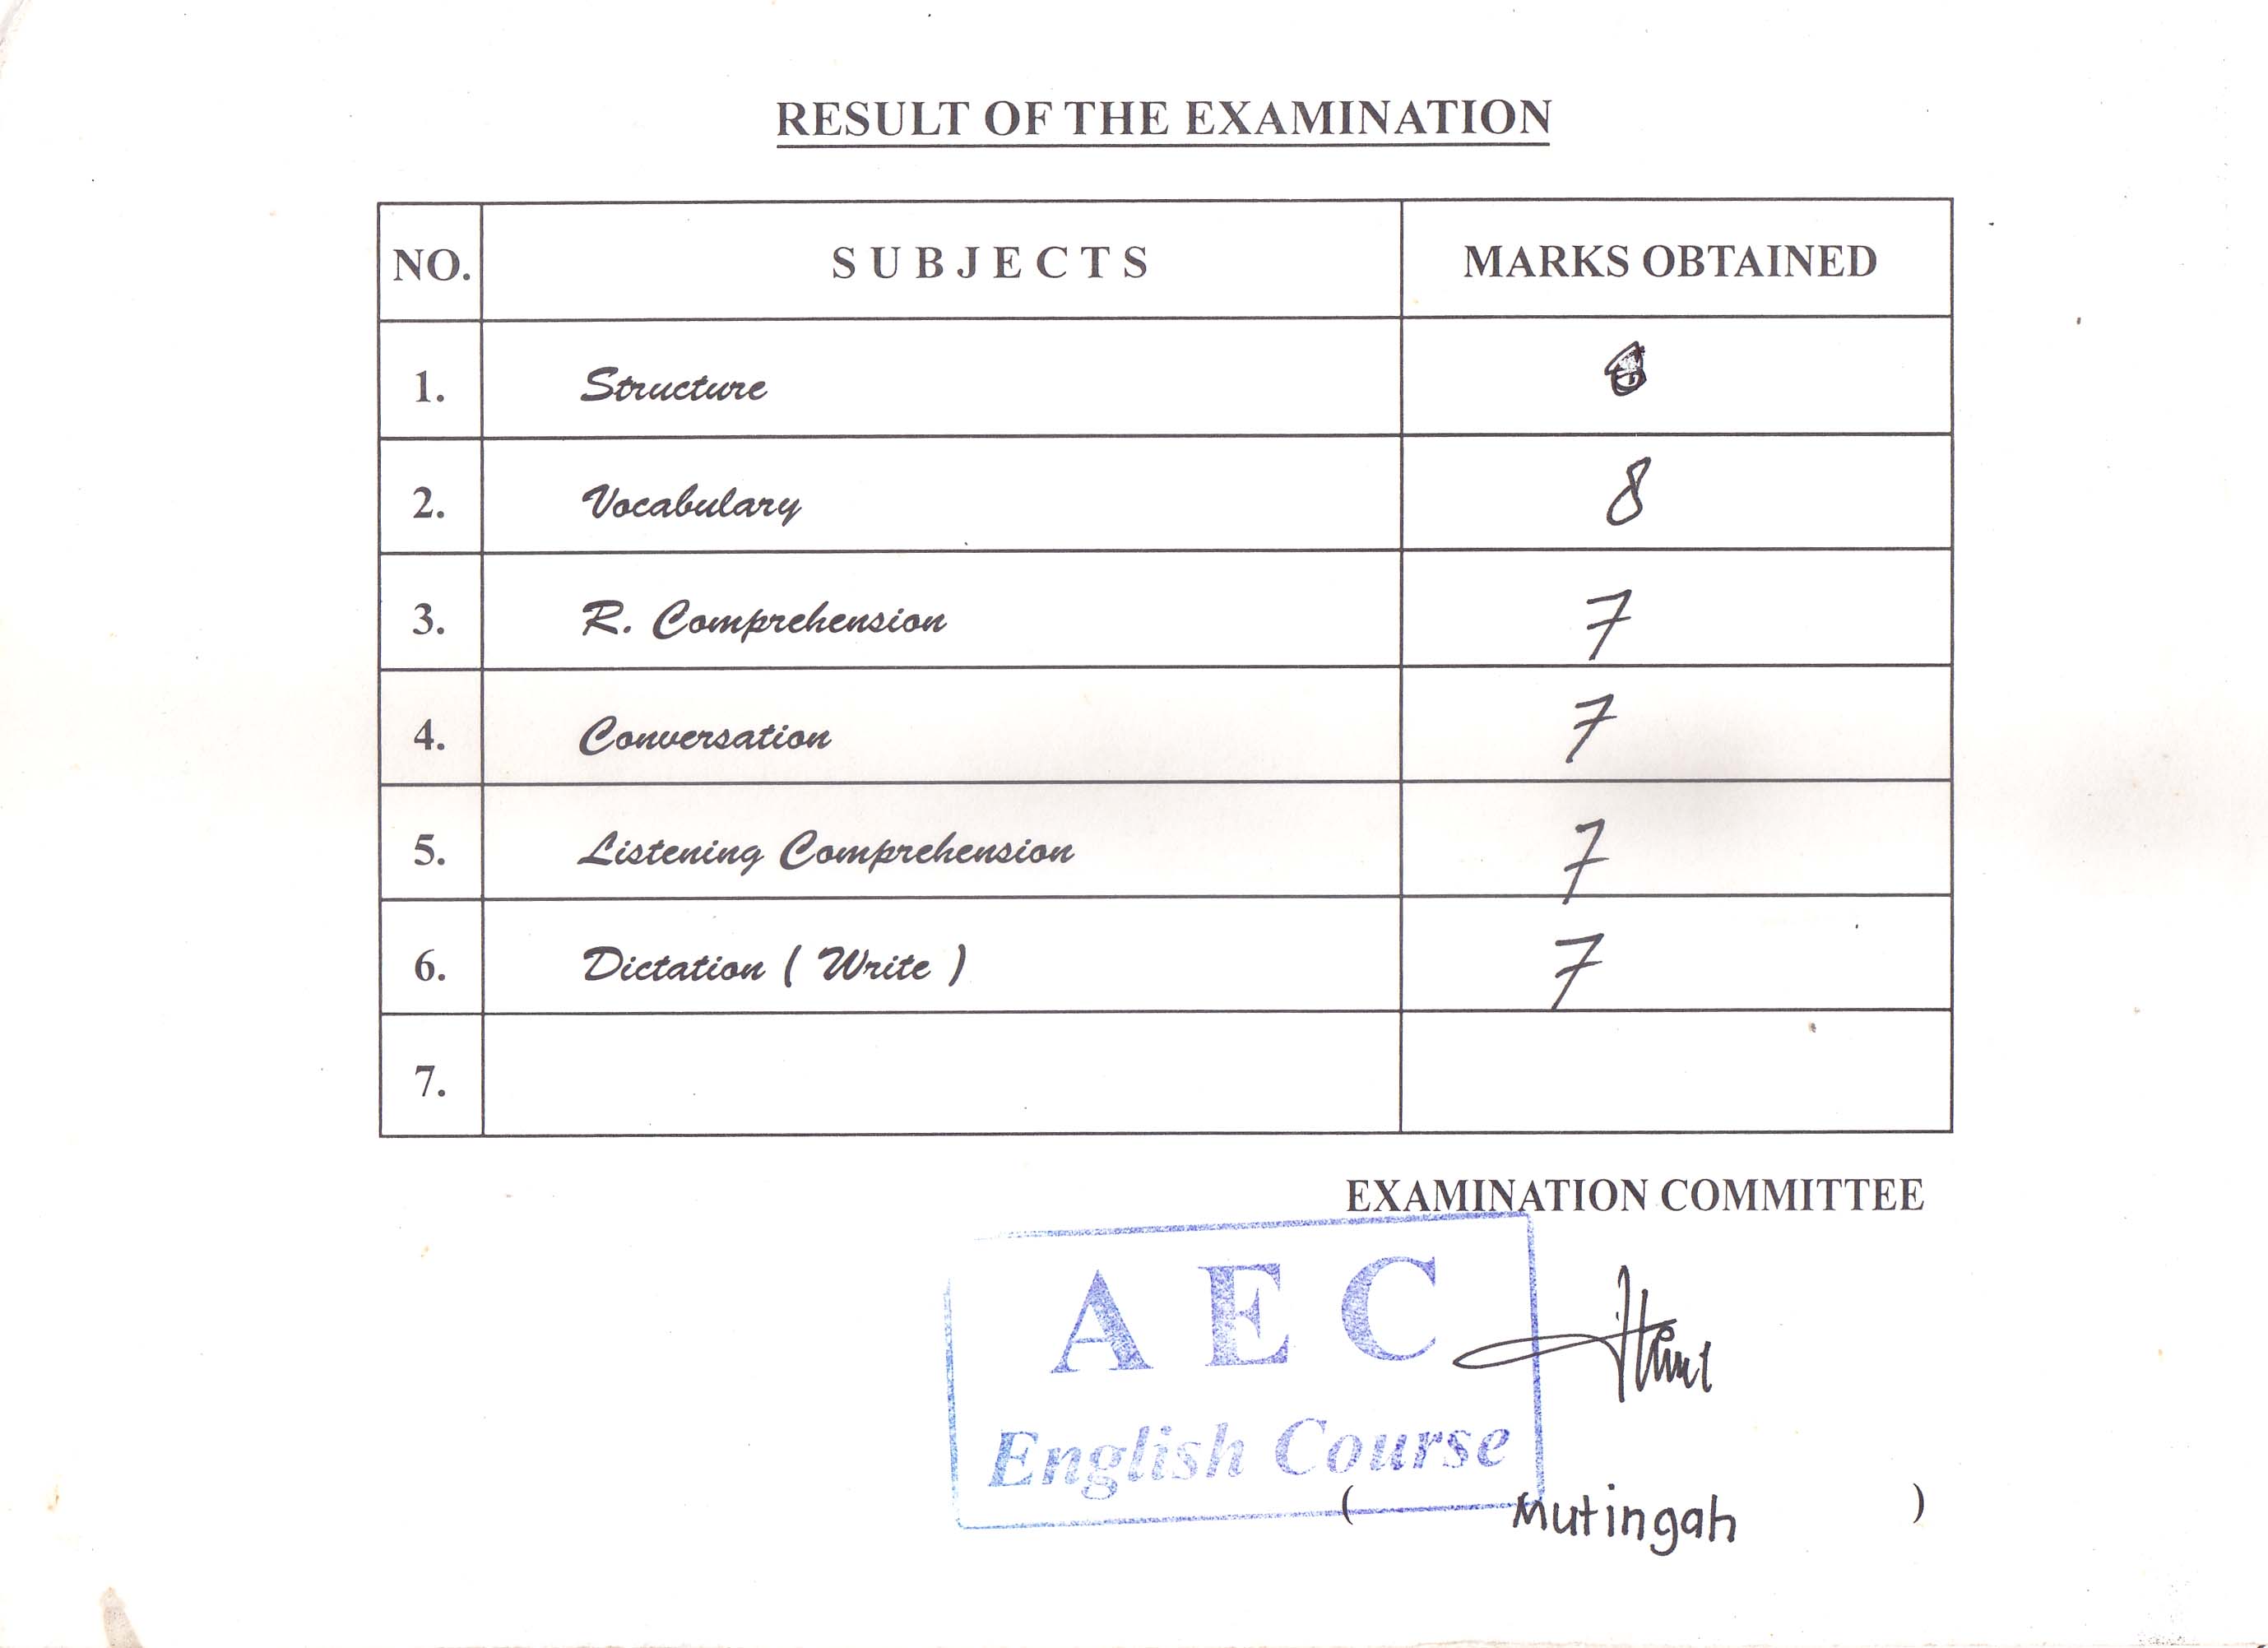 RESULT OF THE EXAMINATION
NO. SUBJECTS MARKS OBTAINED
1. Structure
2. Vocabulary 8
3. R. Comprehension 7
4. Conversation 7
5. Listening Comprehension 7
6. Dictation ( Write ) 7
7.
EXAMINATION COMMITTEE
AEC
English Course
( Mutingah )